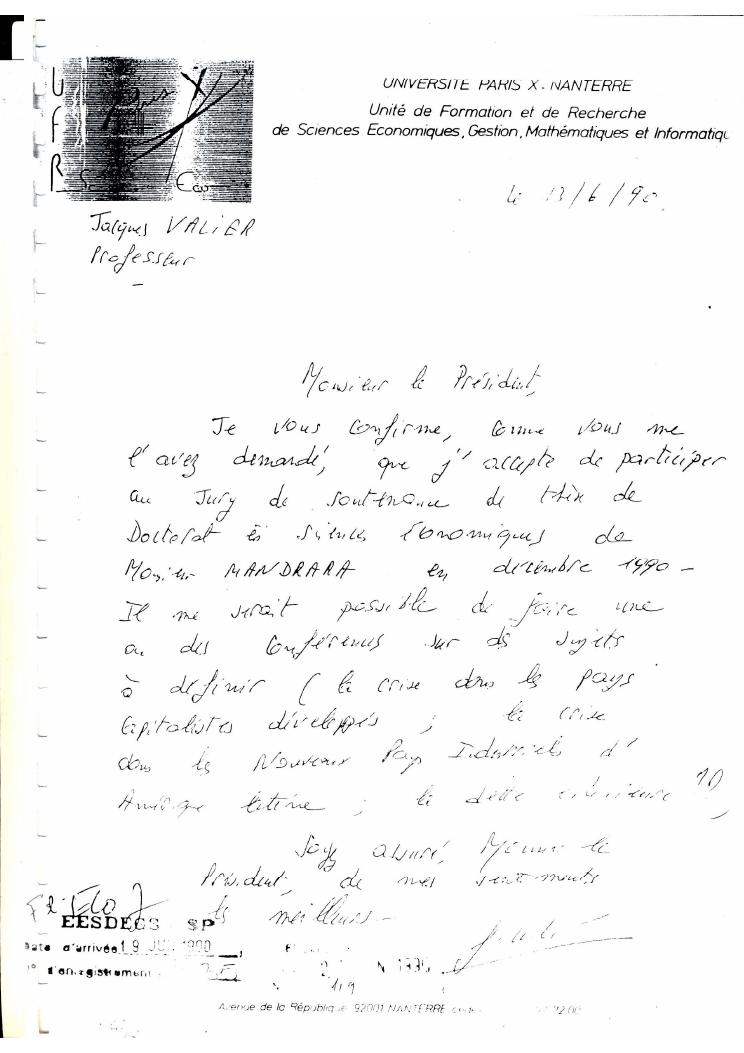 UFR
Paris X
S. Eco
UNIVERSITE PARIS X. NANTERRE
Unité de Formation et de Recherche
de Sciences Economiques, Gestion, Mathématiques et Informatiqu
le 13/6/90
Jacques VALIER
Professeur
Monsieur le Président,
Je vous confirme, comme vous me
l'avez demandé, que j'accepte de participer
au Jury de soutenance de thèse de
Doctorat ès Sciences Economiques de
Monsieur MANDRARA en décembre 1990 -
Il me serait possible de faire une
ou des conférences sur des sujets
à définir ( la crise dans les pays
capitalistes développés ; la crise
dans les Nouveaux Pays Industriels d'
Amérique latine ; la dette extérieure
Soyez assuré, Monsieur le
Président, de mes sentiments
les meilleurs -
EESDEGS SP
Date d'arrivée 19 JU 1990
N° d'enregistrement
Avenue de la République 92001 NANTERRE